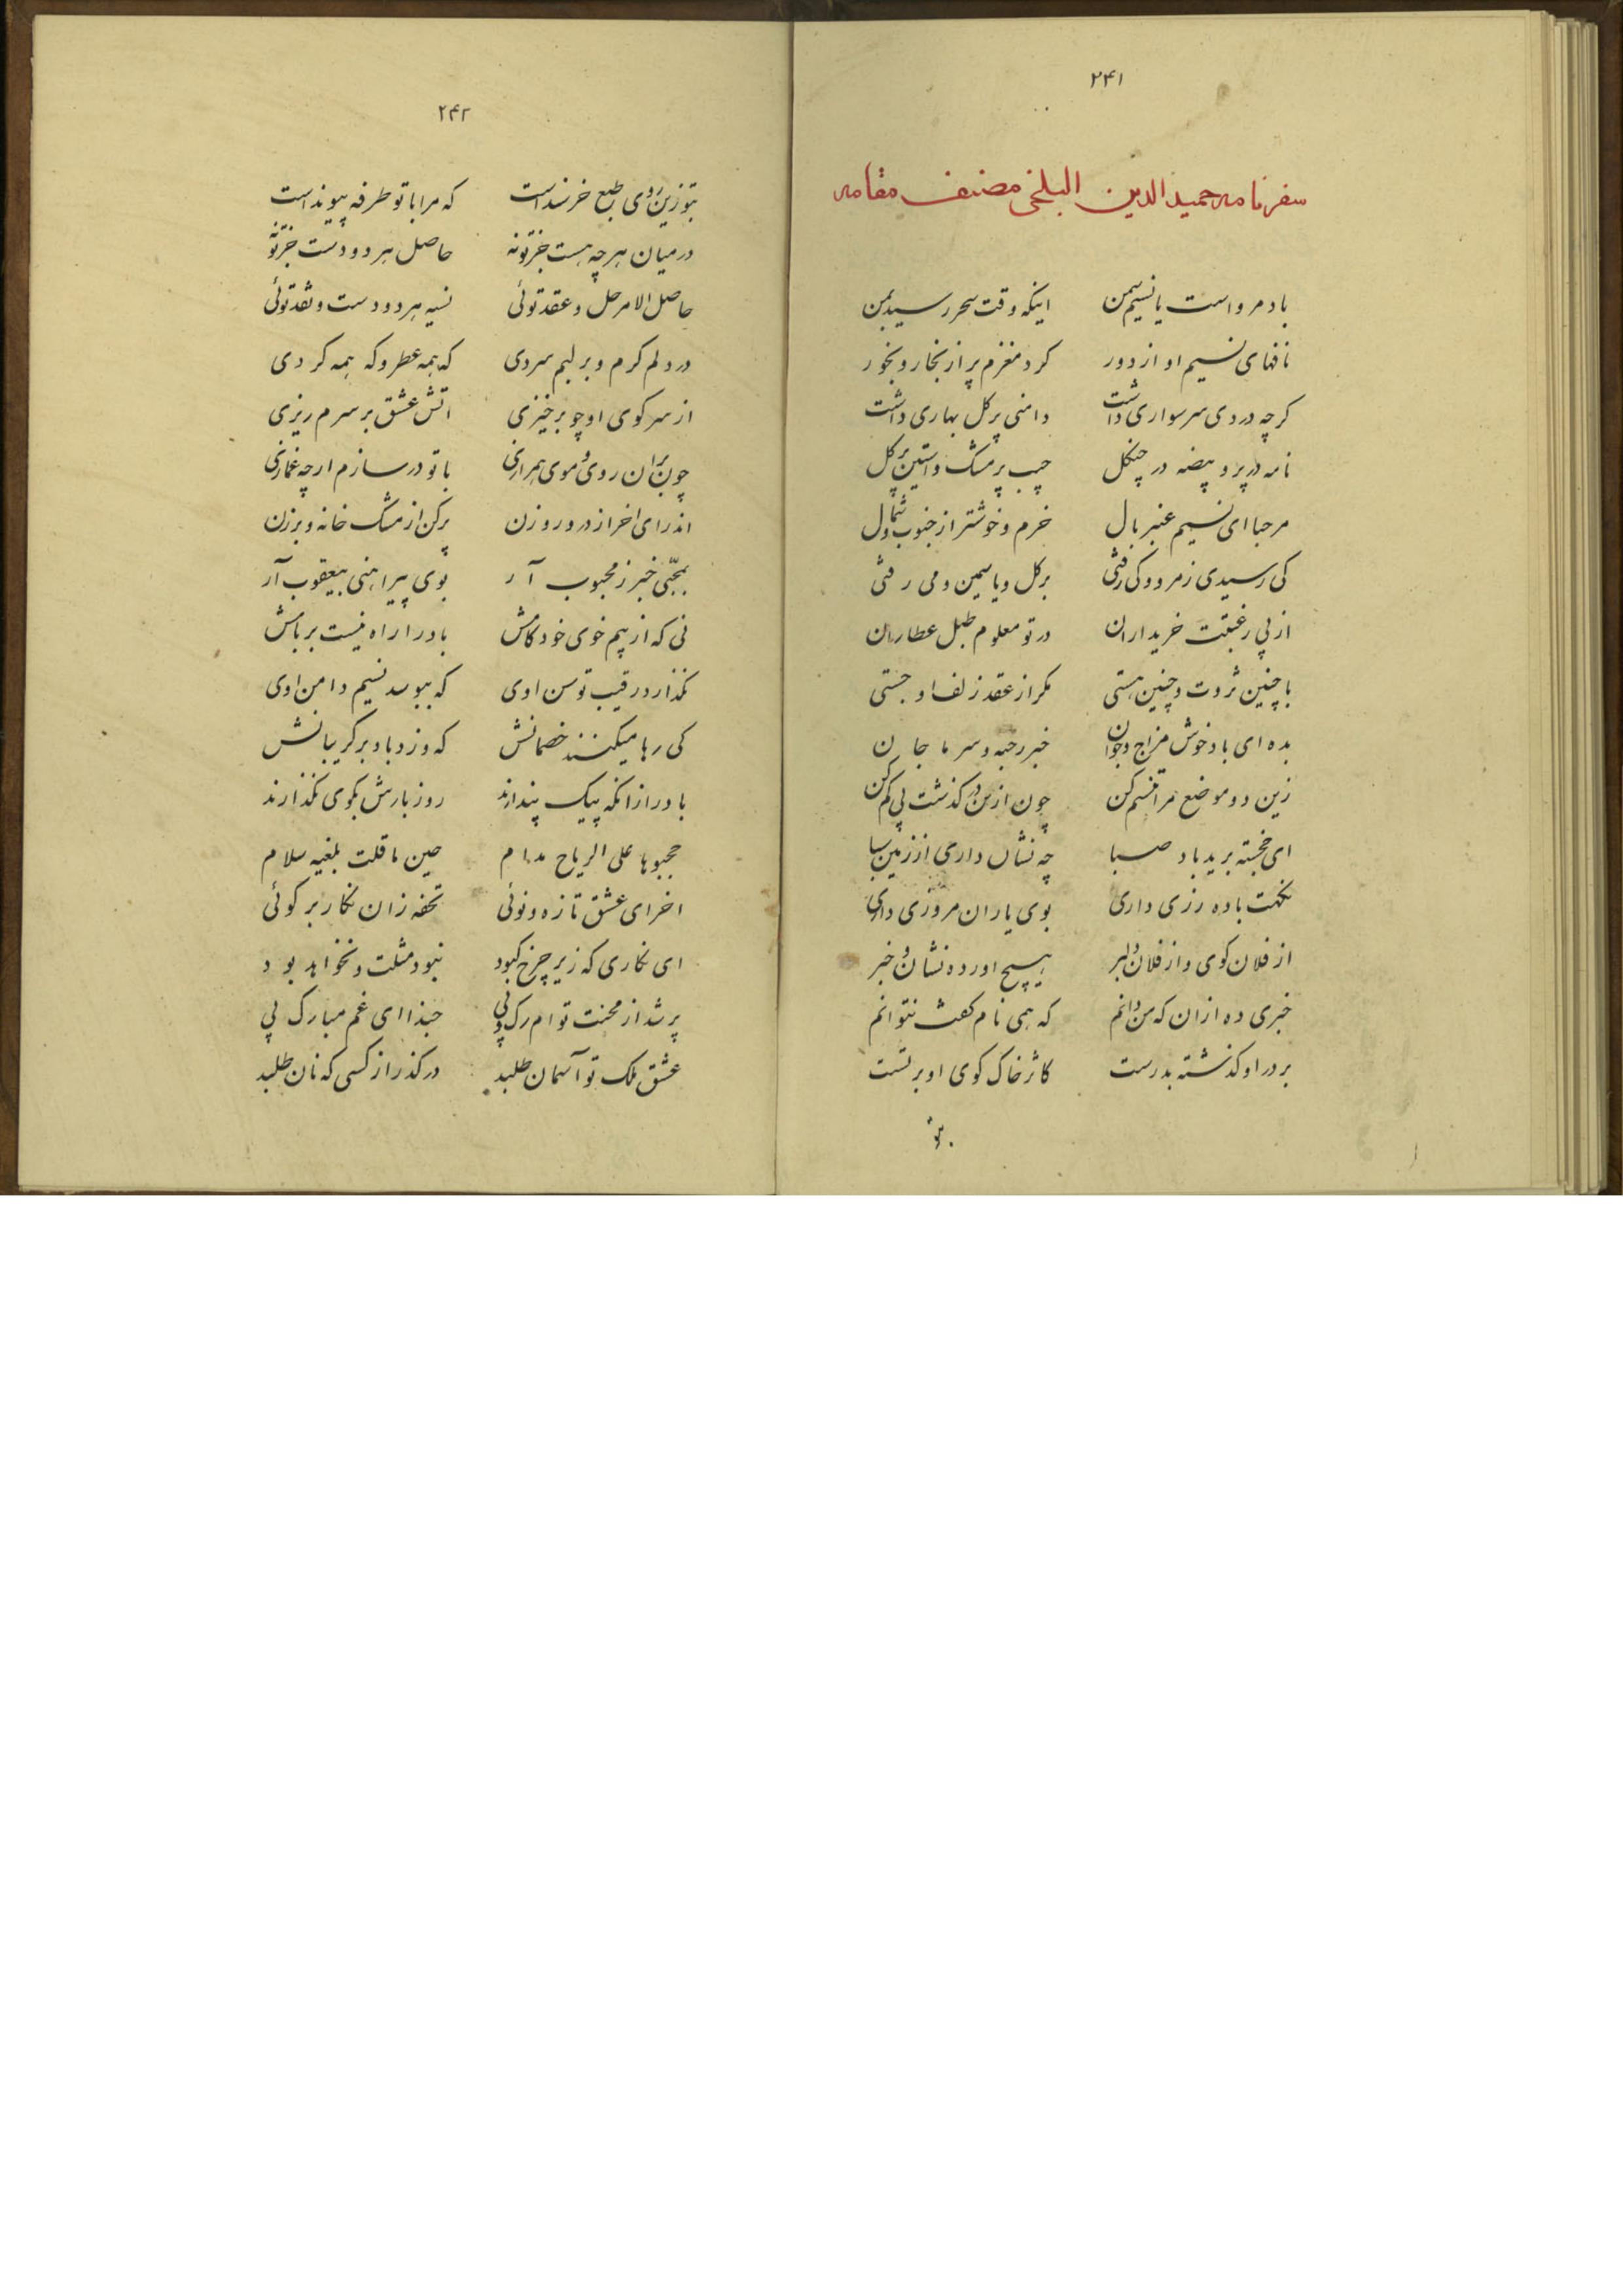 ۲۴۱
سفرنامه حمیدالدین البلخی مصنف مقامه
باد مرو است یا نسیم سمن اینکه وقت سحر رسید بمن
نافهای نسیم او از دور کرد مغزم پر از بخار و بخور
کرچه در وی سر سواری داشت دامنی پر کل بهاری داشت
نامه در پر و بیضه در چنکل جیب پر مشک و استین پر کل
مرحبا ای نسیم عنبر بال خرم و خوشتر از جنوب و شمال
کی رسیدی ز مرو و کی رفتی بر کل و یاسمین و می رفتی
از پی رغبت خریداران در تو معلوم طبل عطاران
با چنین ثروت و چنین هستی مکر از عقد زلف او جستی
بده ای باد خوش مزاج و جوان خبر رحبه و سر ما جان
زین دو موضع مرا تنسم کن چون ازین در کذشت پی کم کن
ای خجسته برید باد صبا چه نشان داری از زمین سبا
نکهت باده رزی داری بوی یاران مروزی داری
از فلان کوی و از فلان دلبر هیچ اورده نشان و خبر
خبری ده ازان که من دانم که همی نام کفت نتوانم
بر در او کذشته بدرست کاثر خاک کوی او بر تست
۲۴۲
بتو زین روی طبع خرسند است که مرا با تو طرفه پیوند است
در میان هر چه هست جز تو نه حاصل هر دو دست جز تو نه
حاصل الامر حل و عقد توئی نسیه هر دو دست و نقد توئی
در دلم کرم و بر لبم سردی که همه عطر و که همه کردی
از سر کوی او چو برخیزی اتش عشق بر سرم ریزی
چون بران روی و موی همرازی با تو در سازم ارچه غمازی
اندر ای اخر از در و روزن پر کن از مشک خانه و برزن
بمحبی خبر ز محبوب آر بوی پیراهنی بیعقوب آر
نی که از بیم خوی خود کامش باد را راه نیست بر بامش
نکذارد رقیب توسن اوی که ببوسد نسیم دامن اوی
کی رها میکنند خصمانش که وزد باد بر کریبانش
باد را زانکه پیک پندارند روز بارش بکوی نکذارند
حجبوها علی الریاح مدام حین ما قلت بلغیه سلام
اخر ای عشق تازه و نوئی تحفه زان نکار بر کوئی
ای نکاری که زیر چرخ کبود نبود مثلت و نخواهد بود
پر شد از محنت توام رک و پی حبذا ای غم مبارک پی
عشق ملک تو آسمان طلبد در کذر از کسی که نان طلبد